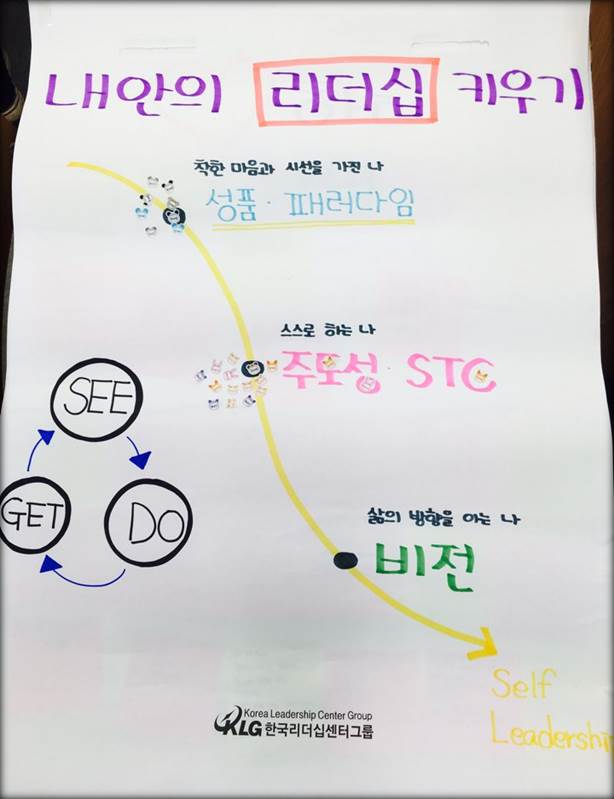 내안의 리더십 키우기
착한 마음과 시선을 가진 나
성품·패러다임
스스로 하는 나
주도성·STC
SEE
GET
DO
삶의 방향을 아는 나
비전
Self
Leadershi
Korea Leadership Center Group
KLG 한국리더십센터그룹